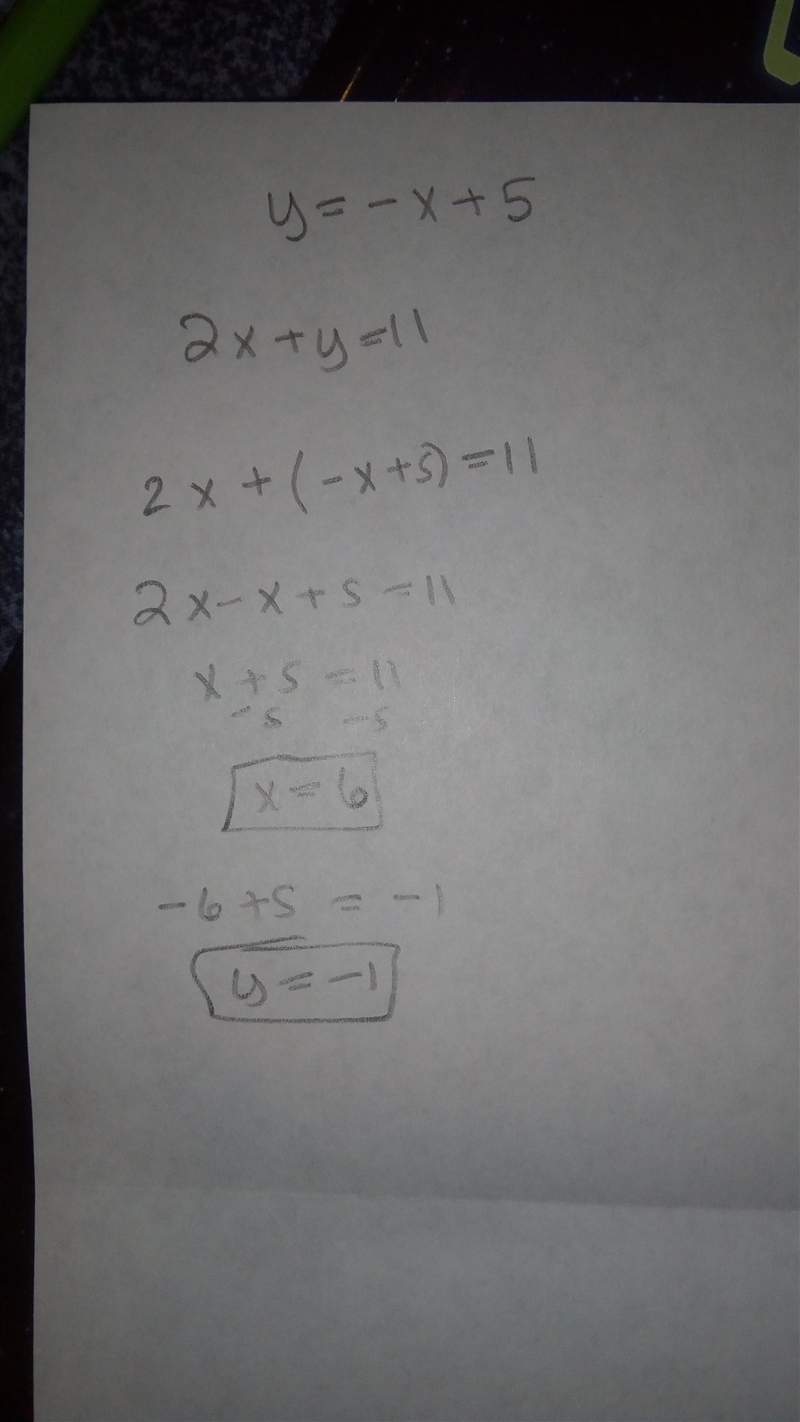 y = -x + 5
2x + y = 11
2x + (-x + 5) = 11
2x - x + 5 = 11
x + 5 = 11
-5 -5
x = 6
-6 + 5 = -1
y = -1